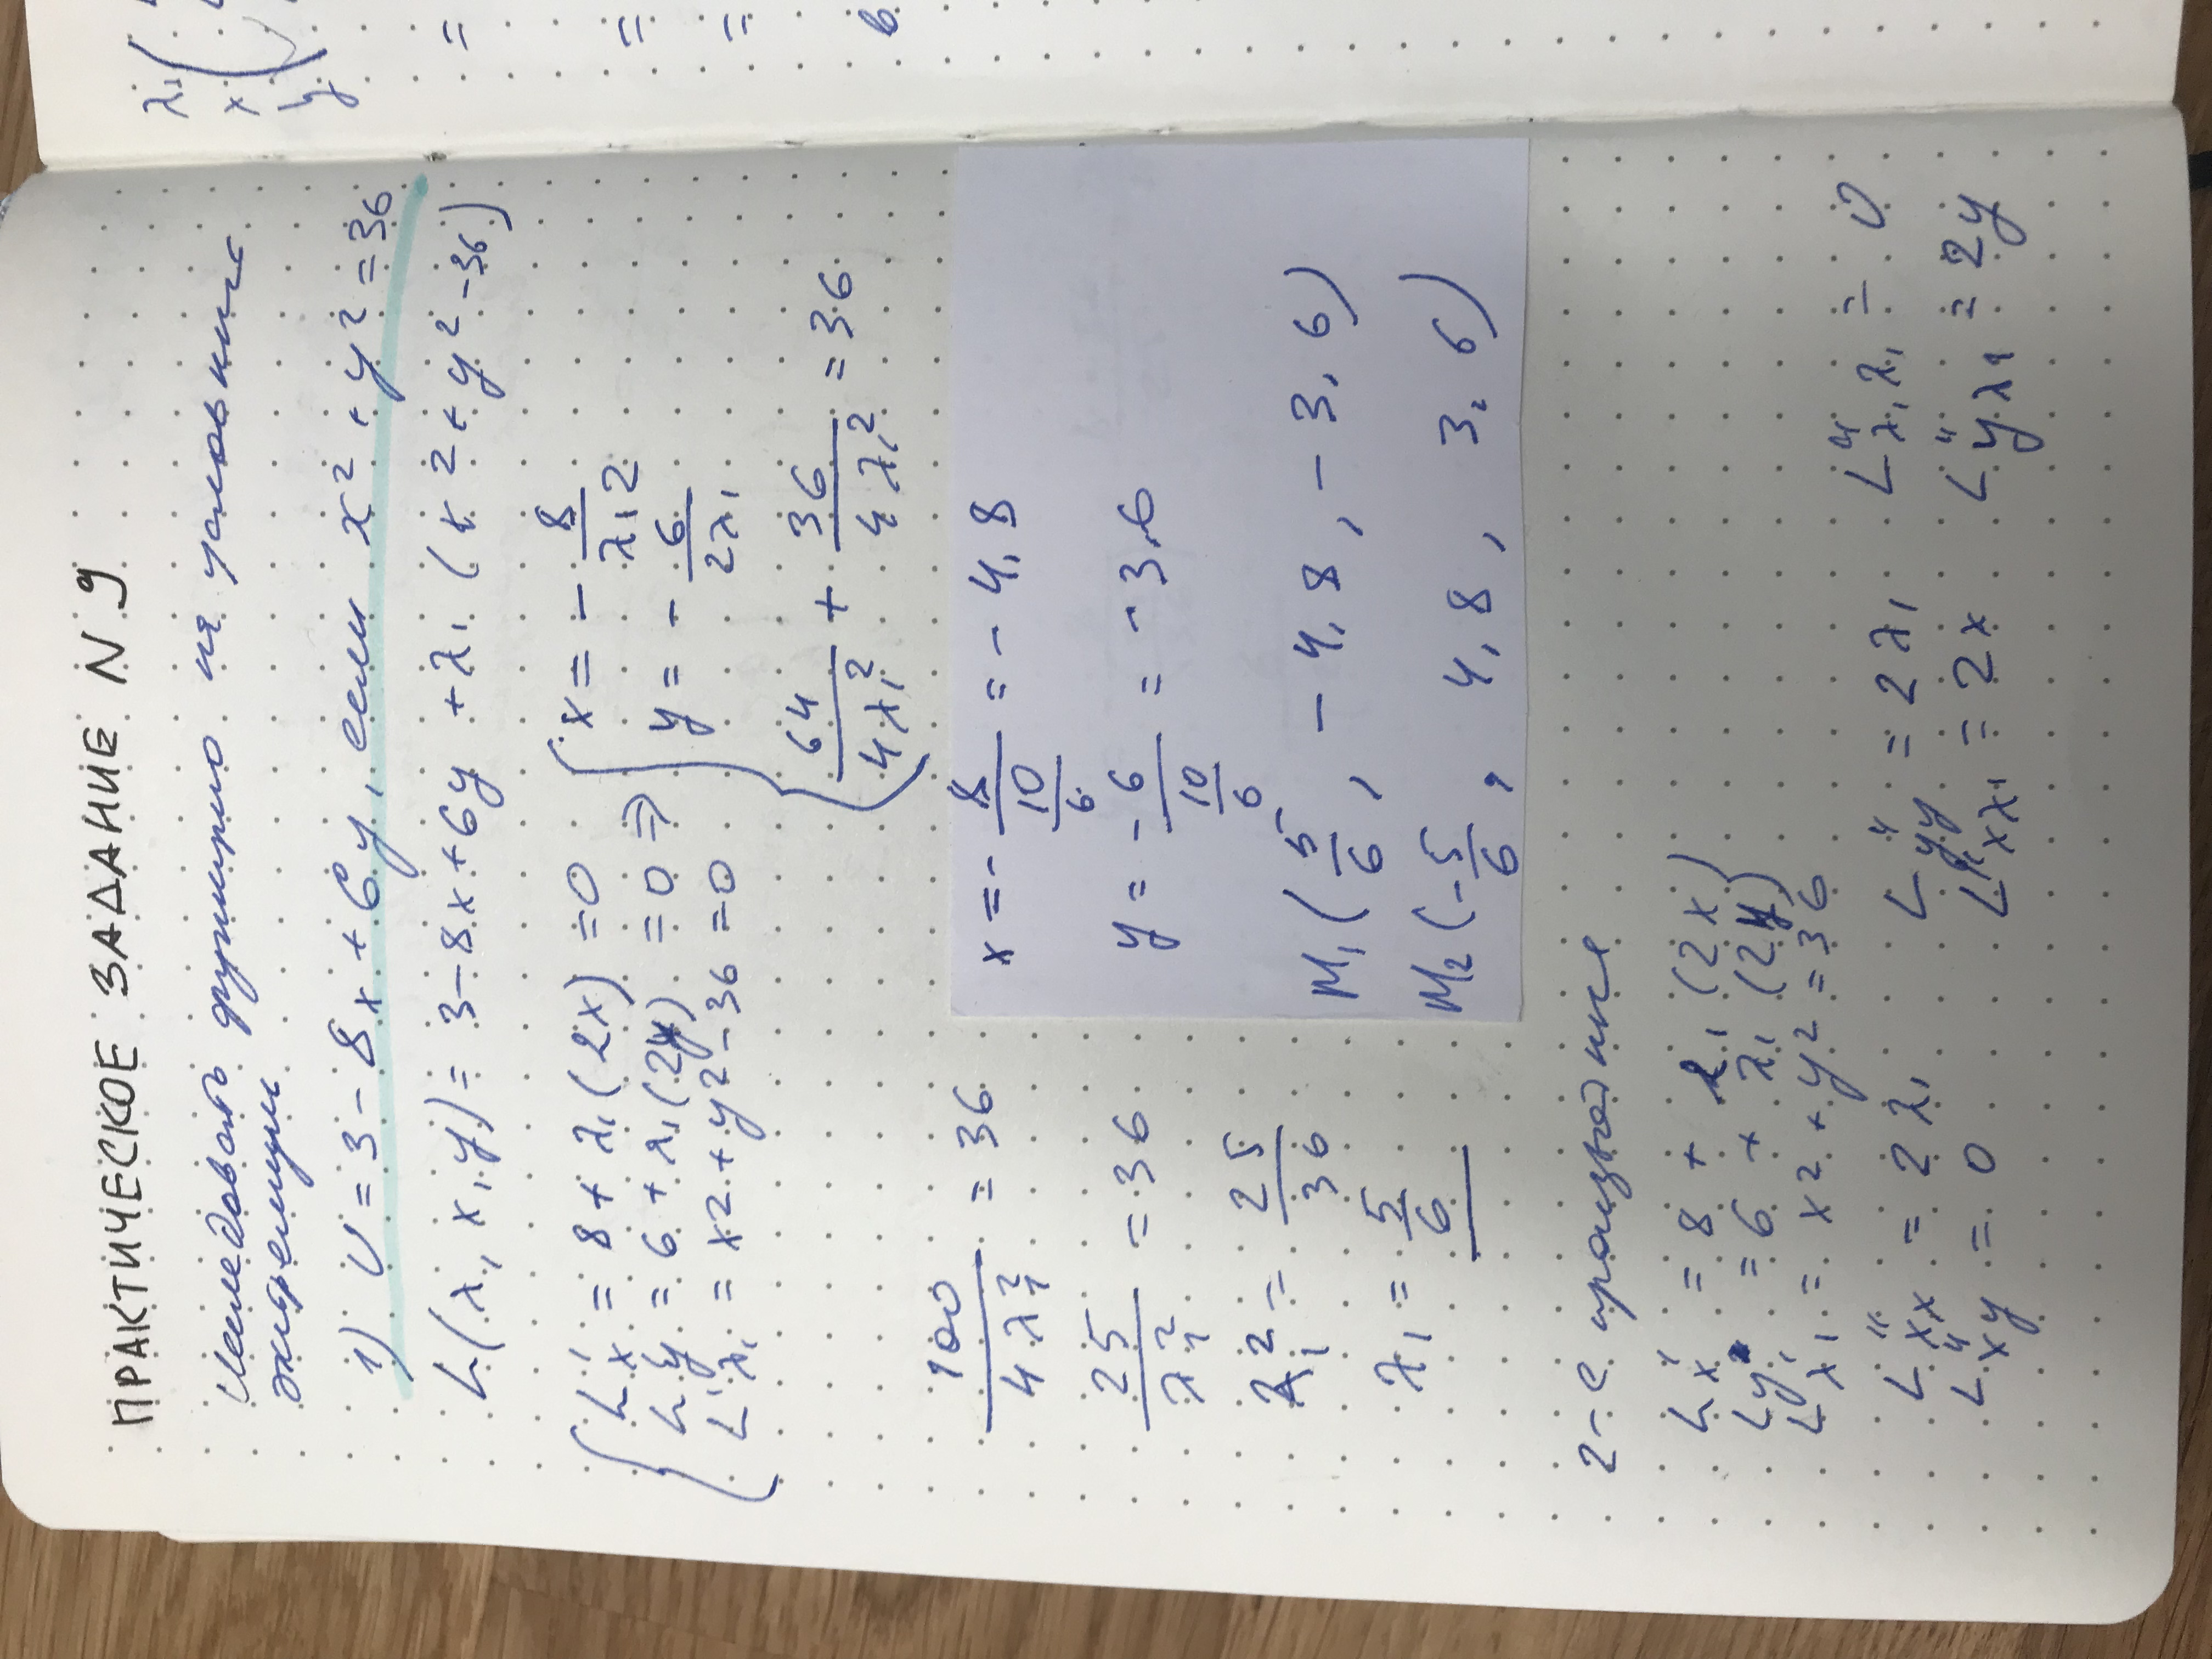 ПРАКТИЧЕСКОЕ ЗАДАНИЕ N 9
Исследовать функцию на условный
экстремум
1) U = 3 - 8x + 6y, если x² + y² = 36
L(λ, x, y) = 3 - 8x + 6y + λ₁ (x² + y² - 36)
L'x = 8 + λ₁(2x) = 0 ⇒ x = - 8/(λ₁2)
L'y = 6 + λ₁(2y) = 0 y = - 6/(2λ₁)
L'λ₁ = x² + y² - 36 = 0
64/(4λ₁²) + 36/(4λ₁²) = 36
100/(4λ₁²) = 36
25/λ₁² = 36
λ₁² = 25/36
λ₁ = 5/6
x = - 8/(10/6) = - 4,8
y = - 6/(10/6) = - 3,6
M₁ (5/6, - 4,8, - 3,6)
M₂ (-5/6, 4,8, 3,6)
2-е производные
L'x = 8 + λ₁ (2x)
L'y = 6 + λ₁ (2y)
L'λ₁ = x² + y² = 36
L''xx = 2λ₁ L''yy = 2λ₁ L''λ₁λ₁ = 0
L''xy = 0 L''xλ₁ = 2x L''yλ₁ = 2y
λ₁
x
y
=
=
=